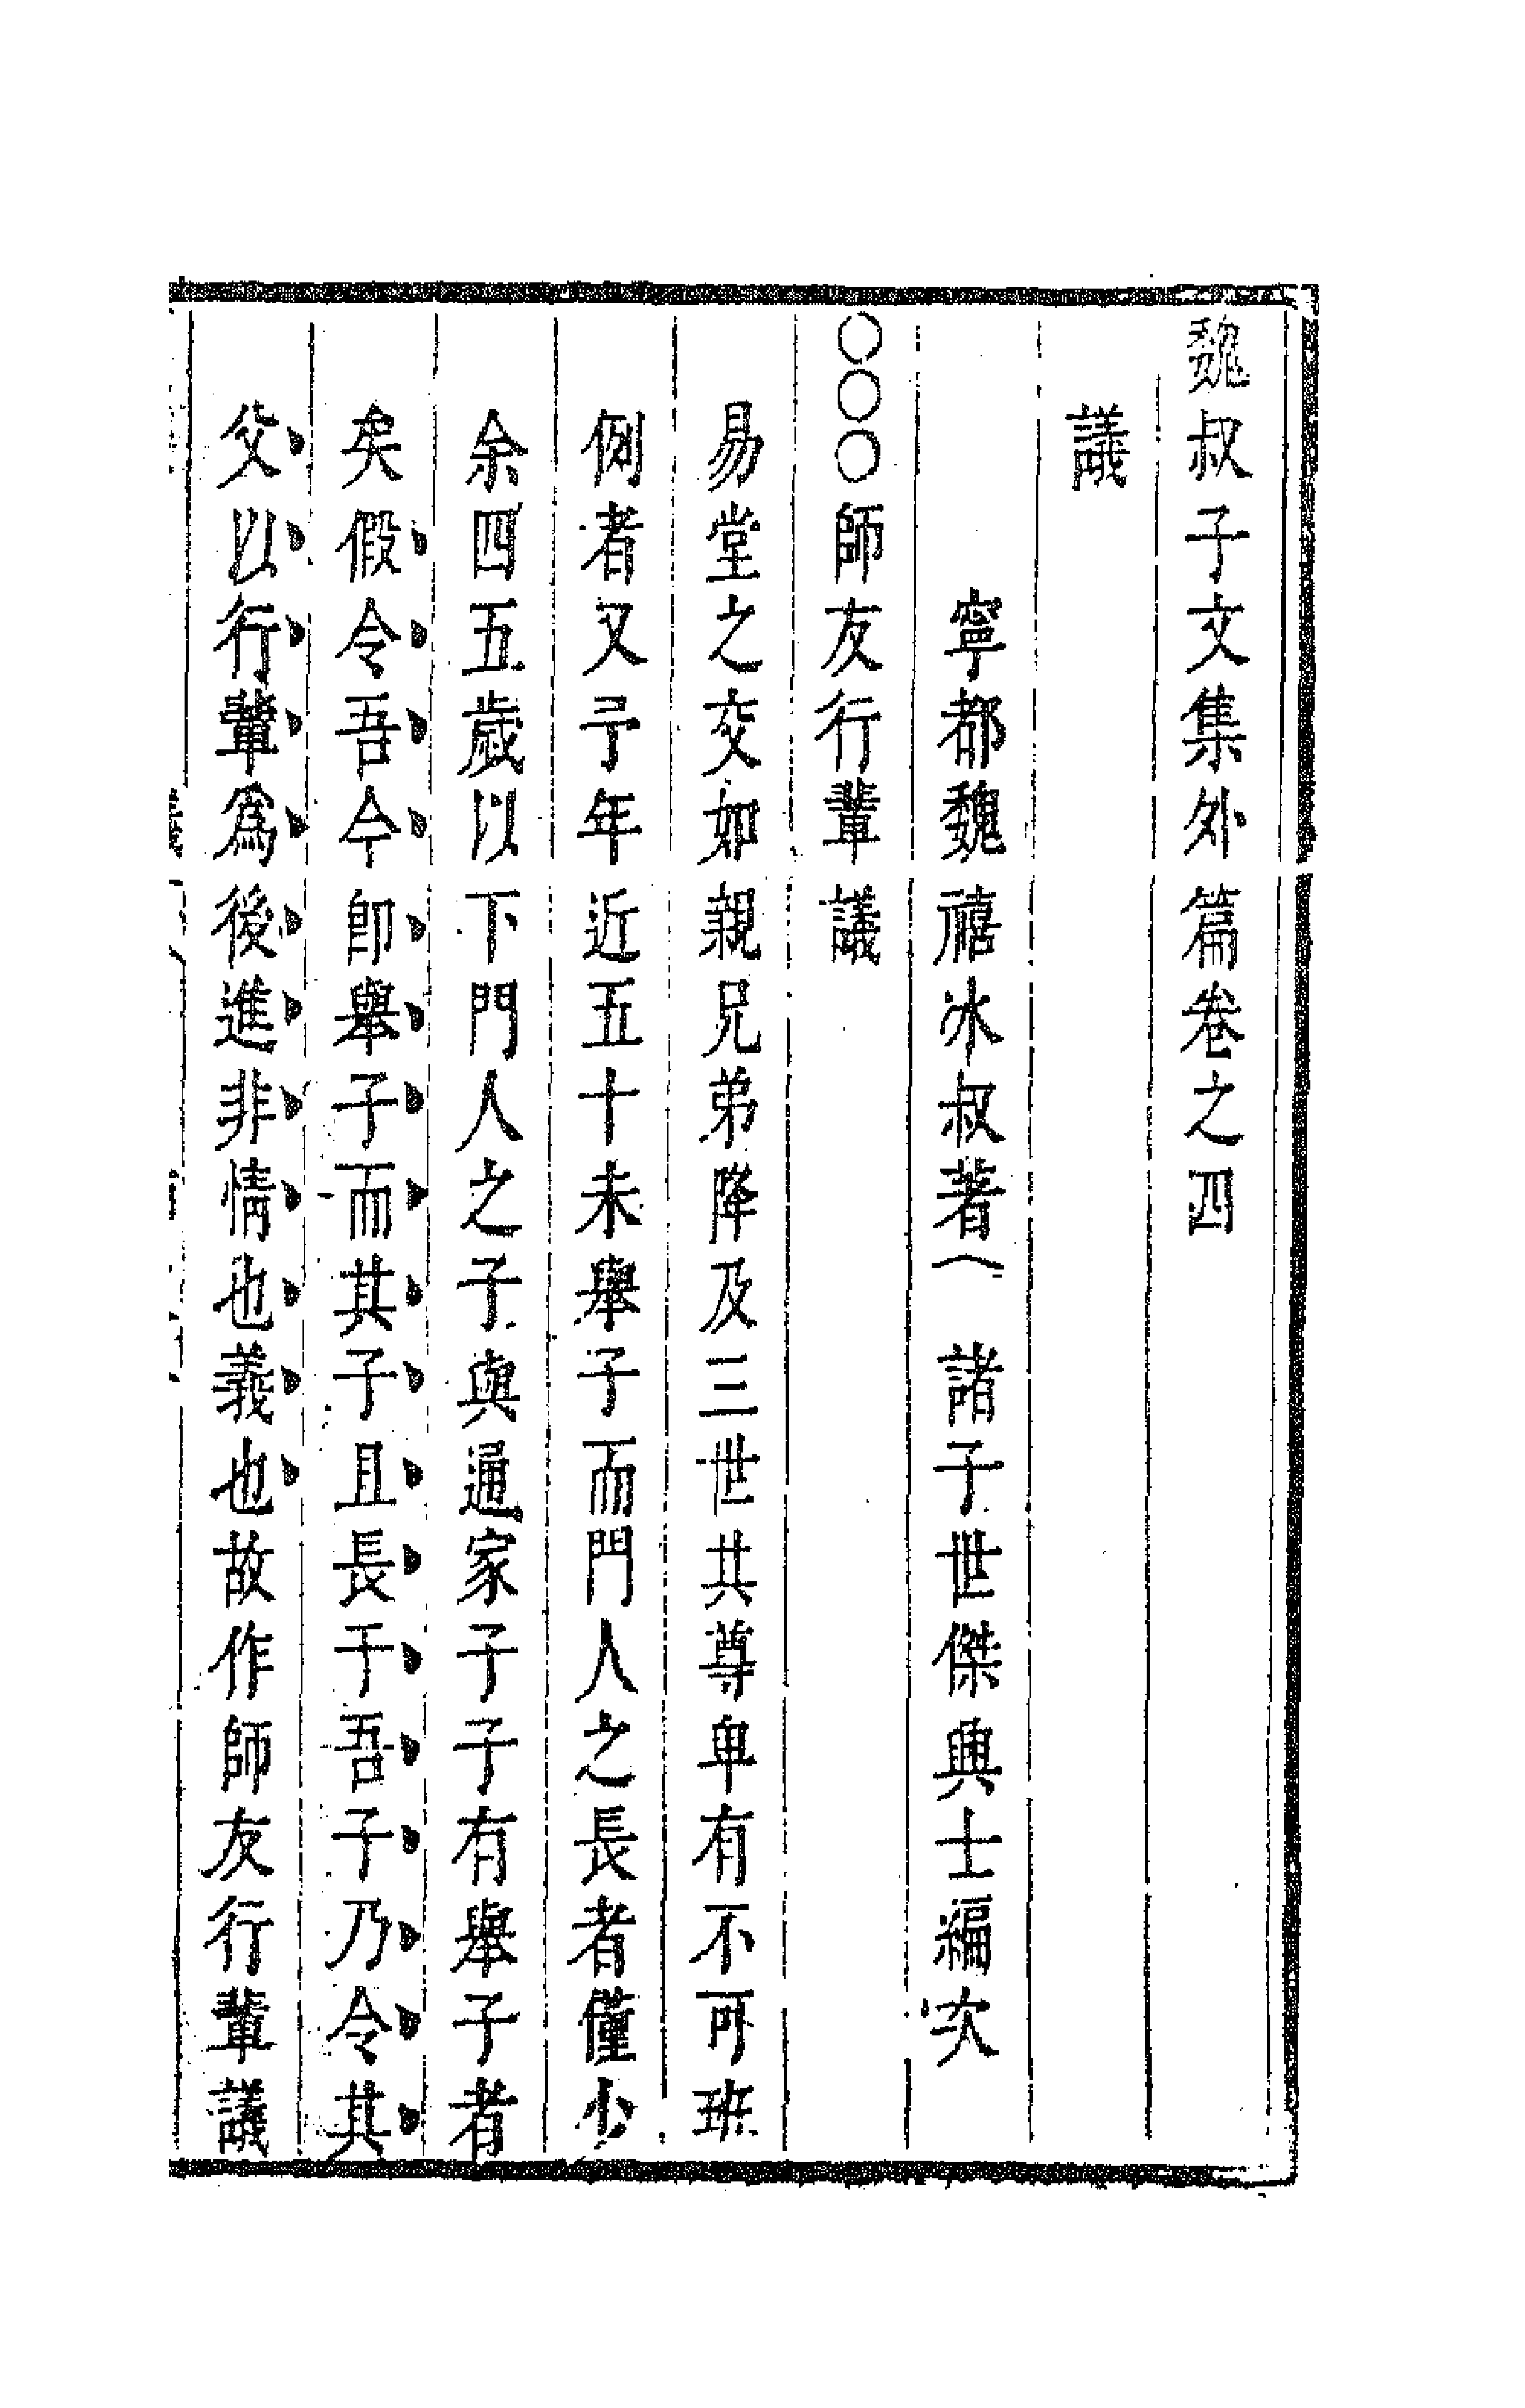 魏叔子文集外篇卷之四
議
寧都魏禧冰叔著 諸子世傑興士編次
○○○師友行輩議
易堂之交如親兄弟降及三世共尊卑有不可班
例者又予年近五十未舉子而門人之長者僅少
余四五歲以下門人之子與通家子子有舉子者
矣假令吾今卽舉子而其子且長于吾子乃令其
父以行輩爲後進非情也義也故作師友行輩議